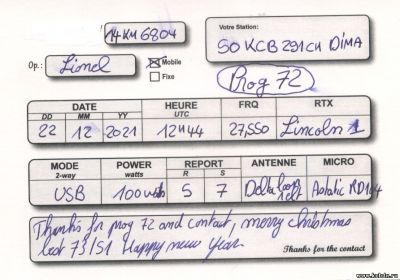 14KM6804
Votre Station:
50 KCB 291CH DiMA
Op.: Lionel
Mobile
Fixe
Prog 72
DATE HEURE FRQ RTX
DD MM YY UTC
22 12 2021 12H44 27,550 Lincoln 1
MODE POWER REPORT ANTENNE MICRO
2-way watts R S
USB 100 watts 5 7 Delta loop Astatic RD104
Thanks for prog 72 and contact, merry christmas
73/51 Happy new year
Thanks for the contact
www.kcbdx.ru